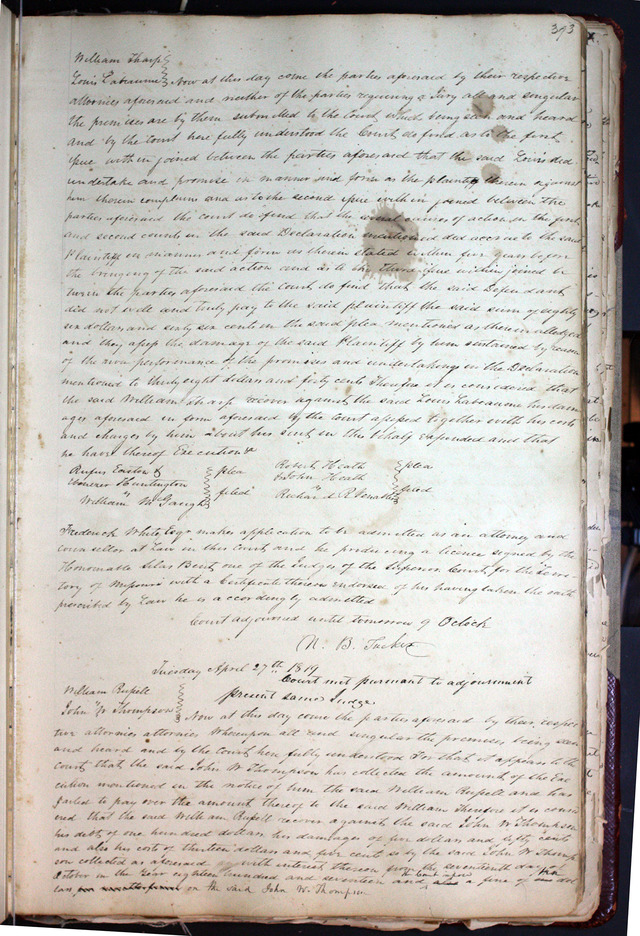 393
William Tharp
Louis Labeaume } Now at this day come the parties aforesaid by their respective
attornies aforesaid and neither of the parties requiring a Jury all and singular
the premises are by them submitted to the Court, which being seen and heard
and by the Court here fully understood the Court do find as to the first
issue within joined between the parties aforesaid that the said Louis did
undertake and promise in manner and form as the plaintiff therein against
him therein complains and as to the second issue within joined between the
parties aforesaid the court do find that the several causes of action in the first
and second counts in the said Declaration mentioned did accrue to the said
Plaintiff in manner and form as therein stated within five years before
the bringing of the said action and as to the third issue within joined be
twixt the parties aforesaid the Court do find that the said Defendant
did not well and truly pay to the said plaintiff the said sum of eighty
six dollars and sixty six cents in the said plea mentioned as therein alledged
and they assess the damage of the said Plaintiff by him sustained by reason
of the non performance of the promises and undertakings in the Declaration
mentioned to thirty eight dollars and forty cents Therefore it is considered that
the said William Tharp recover against the said Louis Labeaume his dam
ages aforesaid in form aforesaid by the Court assessed together with his costs
and charges by him about his suit in this behalf expended and that
he have thereof Execution &c
Rufus Easton & } plea Robert Heath } plea
Ebenezer Huntington John Heath
William McGaugh } filed Richard R Venable } filed
Frederick White Esqr makes application to be admitted as an attorney and
councellor at Law in this Court and he producing a licence signed by the
Honourable Silas Bent, one of the Judges of the Superior Court, for the Terri
tory of Missouri with a Certificate thereon endorsed of his having taken the oath
prescribed by Law he is accordingly admitted
Court adjourned until tomorrow 9 Oclock
N. B. Tucker
Tuesday April 27th 1819
Court met pursuant to adjournment
present same Judge
William Russell
John W Thompson } Now at this day come the parties aforesaid by their respec
tive attornies attornies Whereupon all and singular the premises being seen
and heard and by the Court here fully understood For that it appears to the
Court that the said John W Thompson has collected the amount of the Exe
cution mentioned in the notice of him the said William Russell and has
failed to pay over the amount thereof to the said William Therefore it is consid
ered that the said William Russell recover against the said John W Thompson
his debt of one hundred dollars his damages of ten dollars and fifty cents
and also his costs of thirteen dollars and five cents by the said John W Thomp
son collected as aforesaid with interest thereon from the seventeenth day of
October in the Year eighteen hundred and seventeen and also a fine of ten dol
lars on the said John W. Thompson